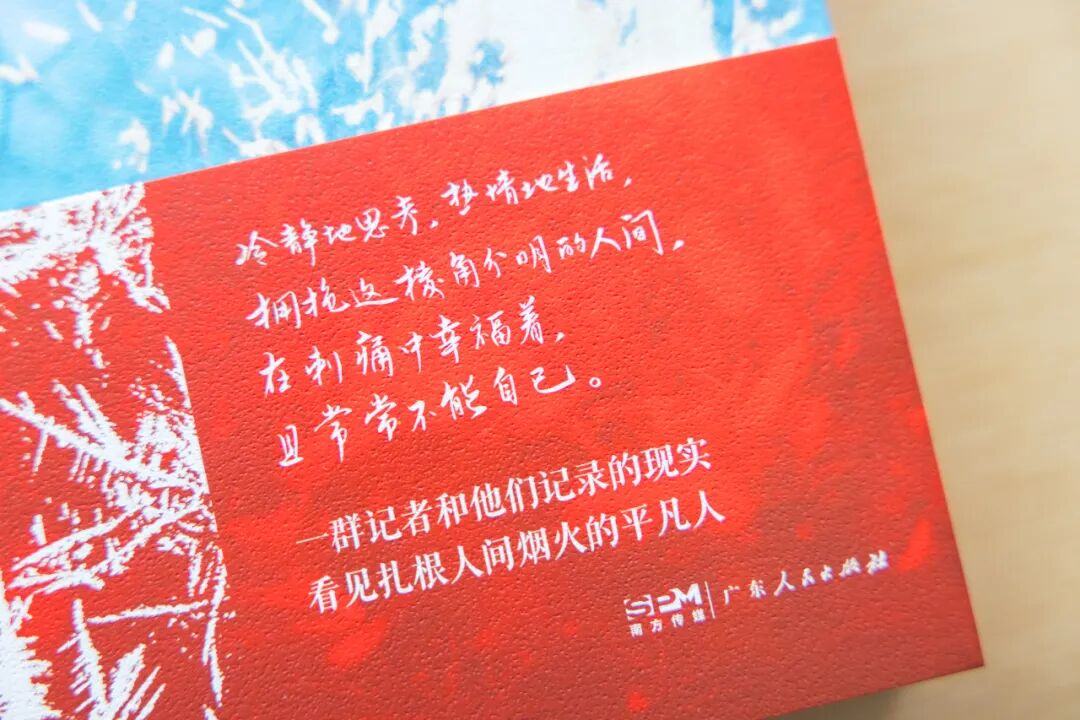 冷静地思考，热情地生活，
拥抱这棱角分明的人间，
在刺痛中幸福着，
且常常不能自已。
一群记者和他们记录的现实
看见扎根人间烟火的平凡人
SPM 南方传媒 | 广东人民出版社